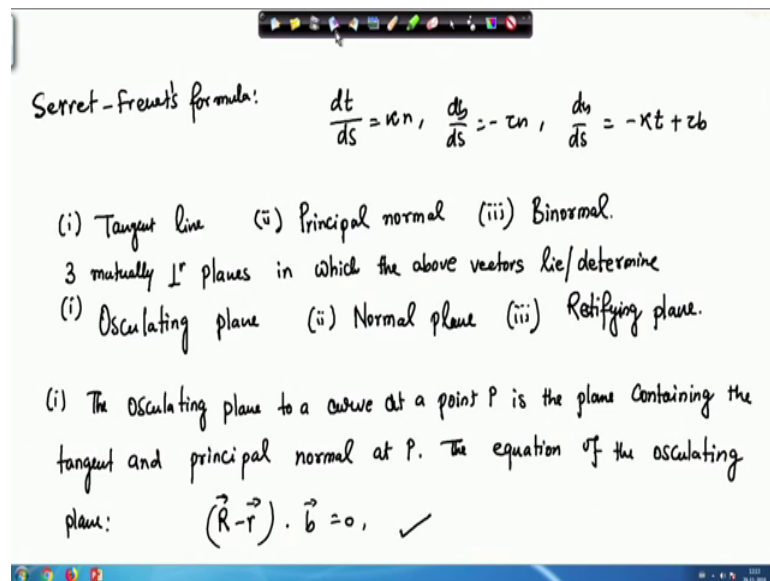 Serret-Frenet's formula: dt/ds = κn, db/ds = -τn, dn/ds = -κt + τb
(i) Tangent line (ii) Principal normal (iii) Binormal.
3 mutually ⊥r planes in which the above vectors lie/determine
(i) Osculating plane (ii) Normal plane (iii) Retifying plane.
(i) The osculating plane to a curve at a point P is the plane containing the
tangent and principal normal at P. The equation of the osculating
plane: (R⃗-r⃗) . b⃗ = 0, ✓